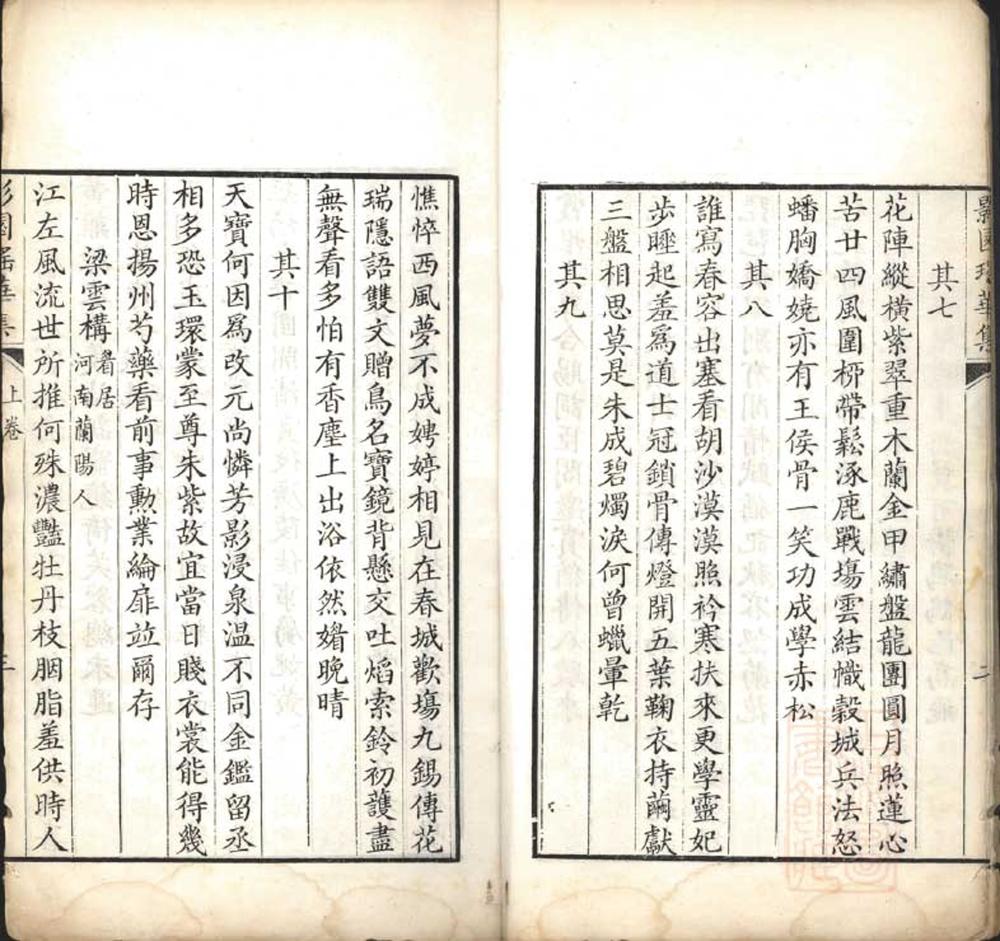 影園瑤華集
二
其七
花陣縱橫紫翠重木蘭金甲繡盤龍團圓月照蓮心
苦廿四風圍桺帶鬆涿鹿戰場雲結幟穀城兵法怒
蟠胸嬌嬈亦有王侯骨一笑功成學赤松
其八
誰寫春容出塞看胡沙漠漠照衿寒扶來更學靈妃
步睡起羞為道士冠鎖骨傳燈開五葉鞠衣持繭獻
三盤相思莫是朱成碧燭淚何曾蠟暈乾
其九
憔悴西風夢不成娉婷相見在春城歡場九錫傳花
瑞隱語雙文贈鳥名寶鏡背懸交吐焰索鈴初護盡
無聲看多怕有香塵上出浴依然媚晚晴
其十
天寶何因為改元尚憐芳影浸泉溫不同金鑑留丞
相多恐玉環蒙至尊朱紫故宜當日賤衣裳能得幾
時恩揚州芍藥看前事勳業綸扉並爾存
梁雲構眷居河南蘭陽人
江左風流世所推何殊濃豔牡丹枝胭脂羞供時人
影園瑤華集
上卷
三